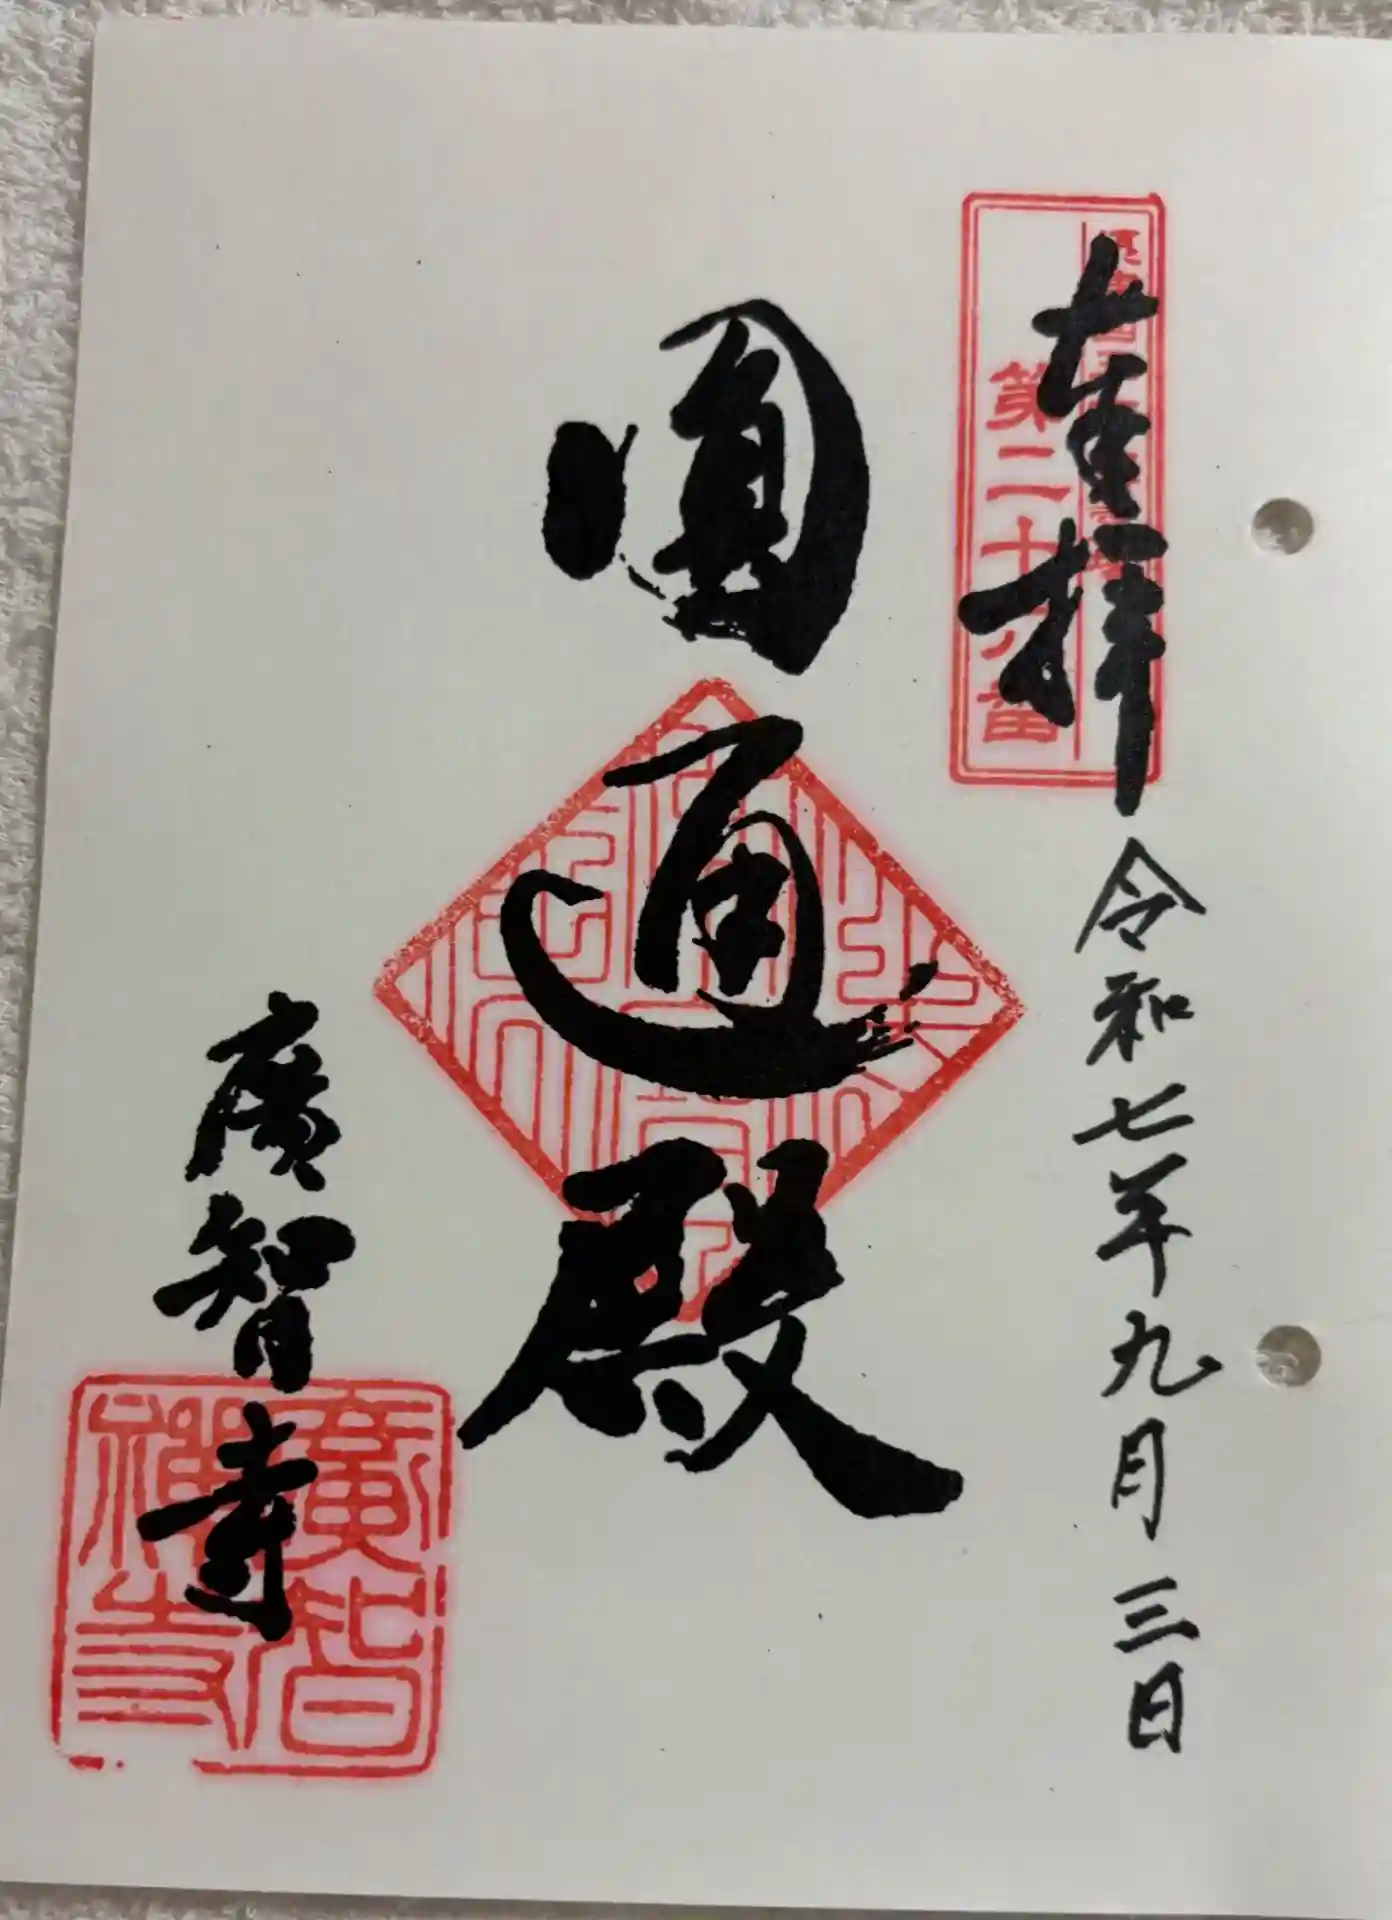 奉拝
令和七年九月三日
第二十八番
圓通殿
廣智寺
廣智禅寺